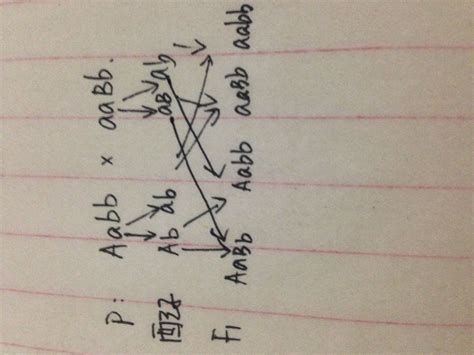 P: Aabb × aaBb.
配子 Ab ab aB ab
F1 AaBb Aabb aaBb aabb